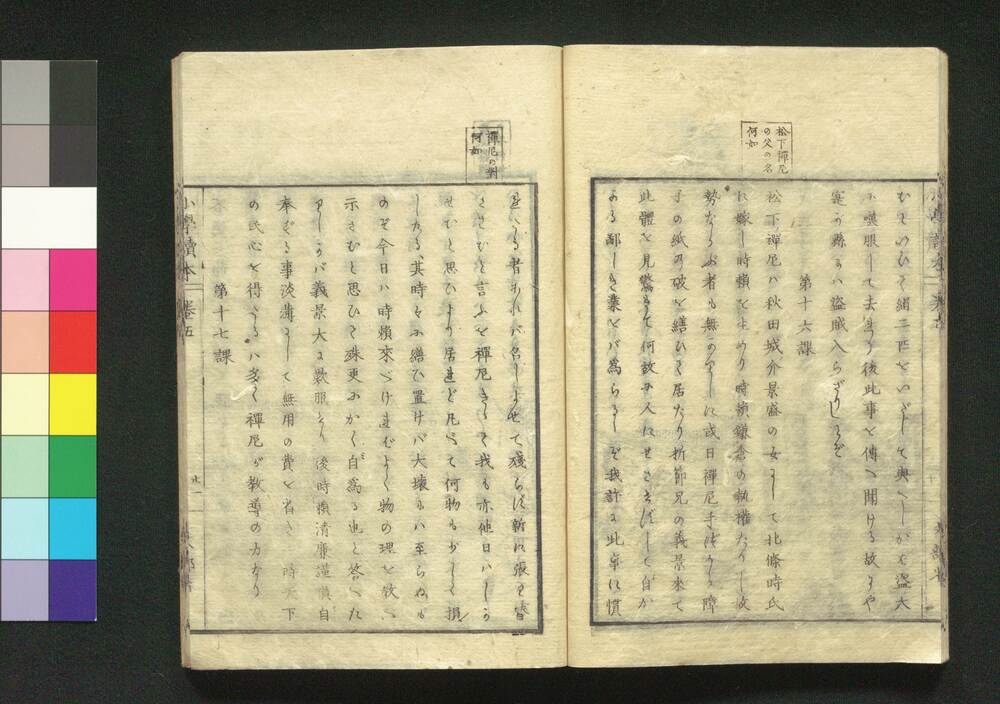 松下禪尼
の父の名
何如
むといひて絹二匹をいだして與へしかば盗大
に嘆服して去
寔が縣には盗賊入らざりしとぞ
第十六課
松下禪尼ハ秋田城介景盛の女にして北條時氏
に嫁し時頼を生めり時頼鎌倉の執權たりし故
勢ならぶ者も無かりしに或日禪尼手づから障
子の紙の破を繕ひて居たり折節兄の義景來て
此體を見驚きて何故に人にはせさせずして自か
かる鄙しき業をバ爲らるゝぞ我許に此業に慣
禪尼の對
何如
たる者あれバ
させむと言ふを禪尼きゝて我も亦他日ハしか
せむと思ひより居れど凡そ何物も少しく損
したる其時々に繕ひ置けバ大壞にハ至らぬも
のぞ今日ハ時頼來べければよく物の理を教へ
示さむと思ひて殊更にかく自爲る也と答へた
りしかバ義景大に歎服せり後時頼清廉謹愼自
奉ずる事淡薄にして無用の費を省き一時天下
の民心を得たるハ多く禪尼が教導の力なり
第十七課
小學讀本
卷五